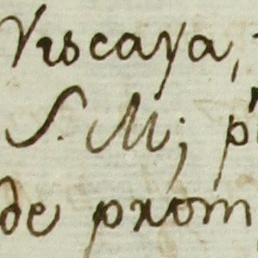 Viscaya,
S. M; p
de prom